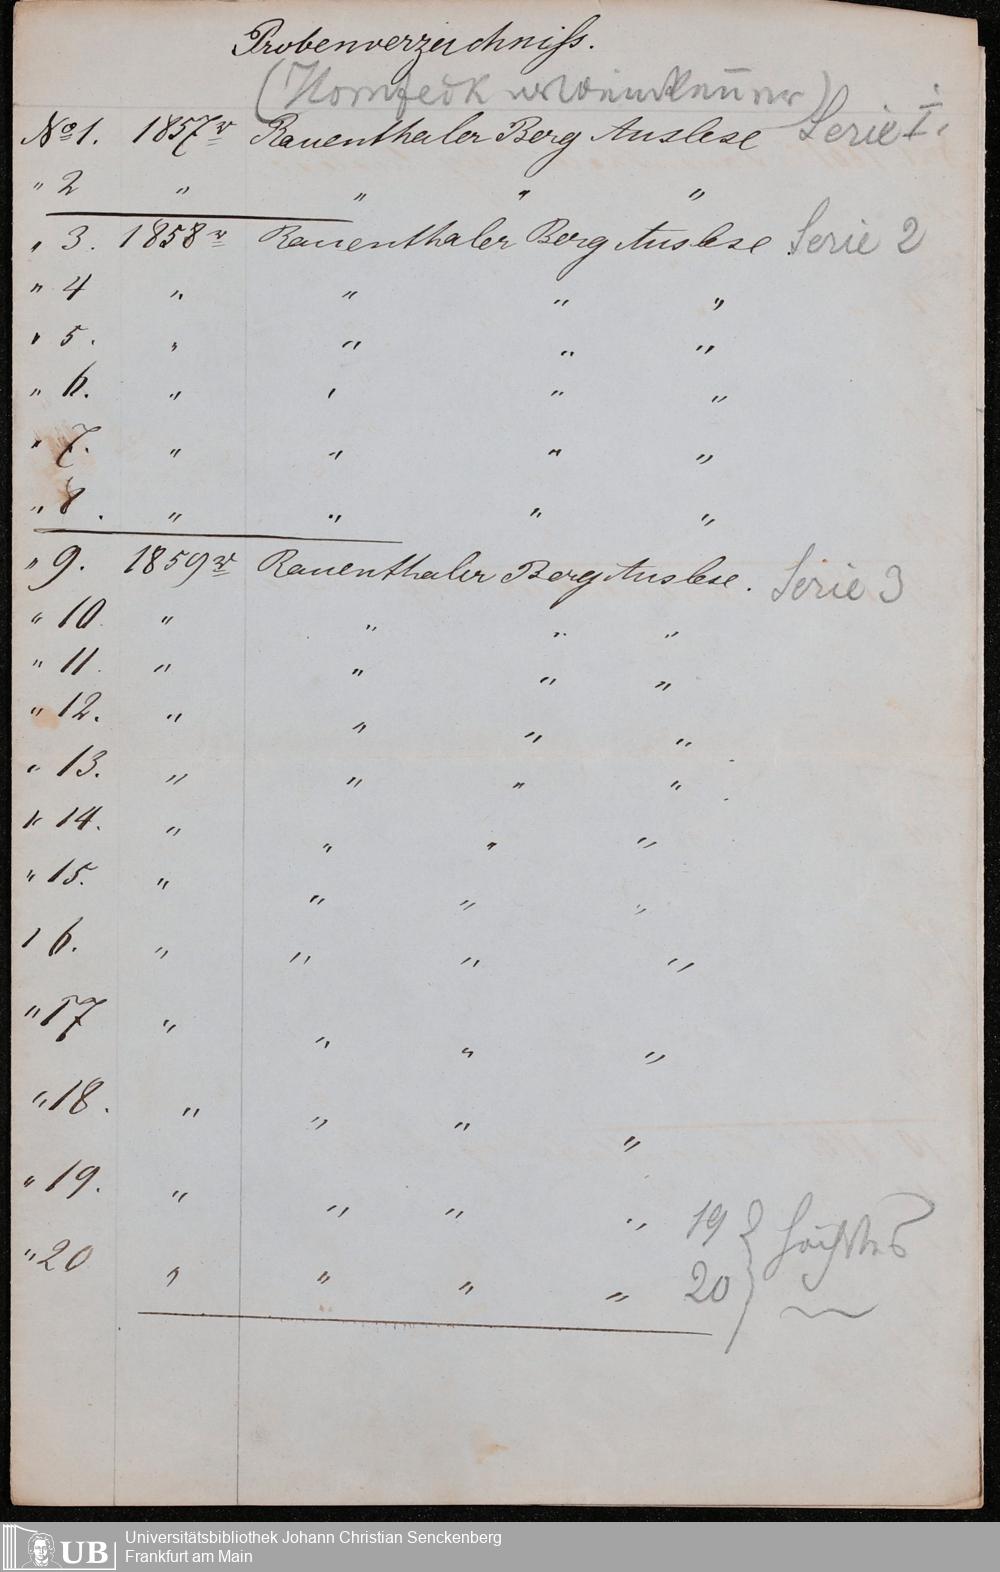 Probenverzeichniß.
No 1. 1857r Rauenthaler Berg Auslese Serie I.
" 2 " " " "
" 3. 1858r Rauenthaler Berg Auslese Serie 2
" 4 " " " "
" 5. " " " "
" 6. " " " "
" 7. " " " "
" 8. " " " "
" 9. 1859r Rauenthaler Berg Auslese. Serie 3
" 10. " " " "
" 11. " " " "
" 12. " " " "
" 13. " " " "
" 14. " " " "
" 15. " " " "
16. " " " "
" 17 " " " "
" 18. " " " "
" 19. " " " " 19
" 20 " " " " 20
UB Universitätsbibliothek Johann Christian Senckenberg
Frankfurt am Main